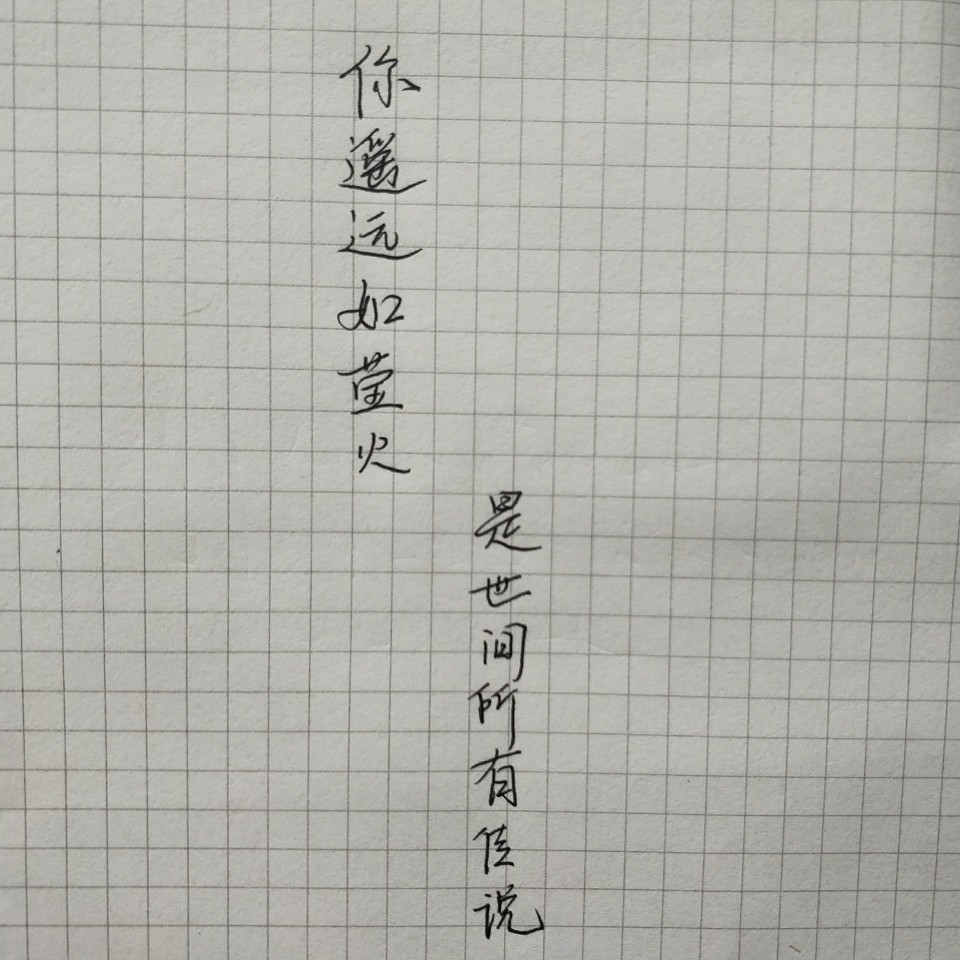 你遥远如萤火
是世间所有佳说